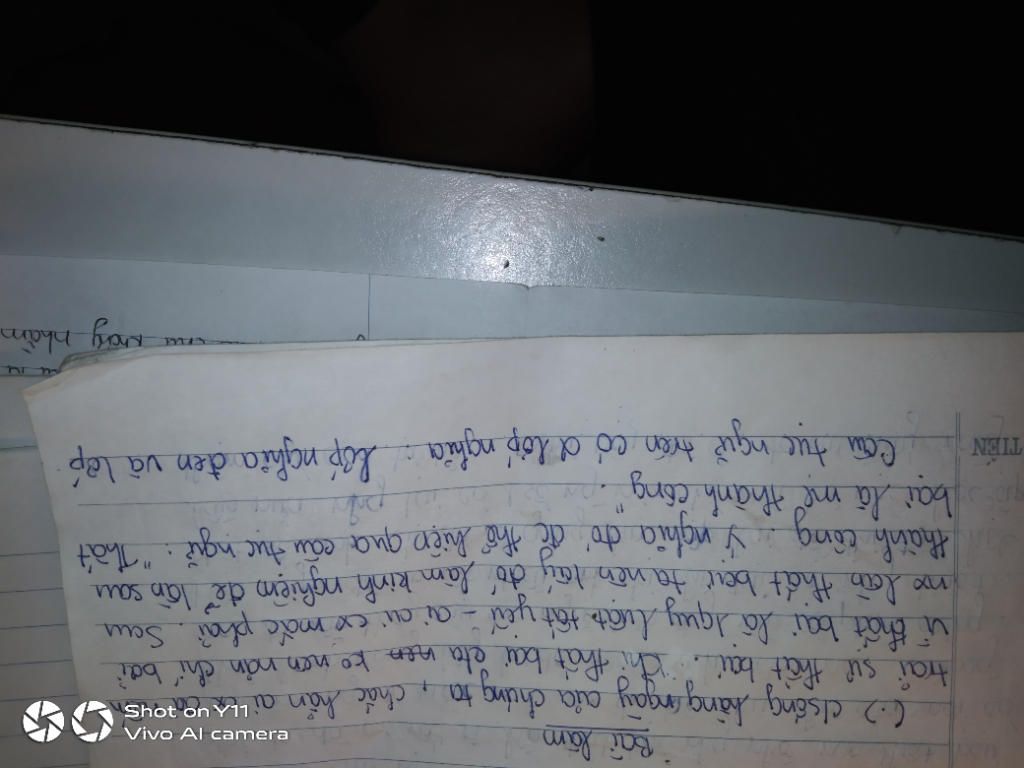 Bài làm
(.) c/sống hằng ngày của chúng ta, chắc hẳn ai cx
trải sự thất bại. Khi thất bại cta ko nên nản chí bởi
vì thất bại là 1 quy luật tất yếu - ai cx mắc phải. Sau
mx lần thất bại ta nên lấy đó làm kinh nghiệm để lần sau
thành công. Ý nghĩa đó đc thể hiện qua câu tục ngữ: "Thất
bại là mẹ thành công".
Câu tục ngữ trên có 2 lớp nghĩa: Lớp nghĩa đen và lớp
TIÊN
nhầm
Shot on Y11
Vivo AI camera